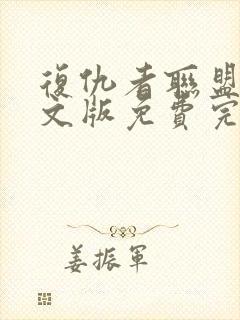 復仇者聯盟
文版免費完
姜振軍